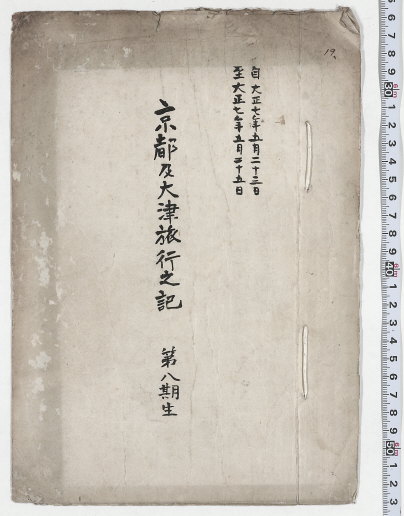 19.
自大正七年五月二十三日
至大正七年五月二十五日
京都及大津旅行之記 第八期生
6 7 8 9 30 1 2 3 4 5 6 7 8 9 40 1 2 3 4 5 6 7 8 9 50 1 2 3